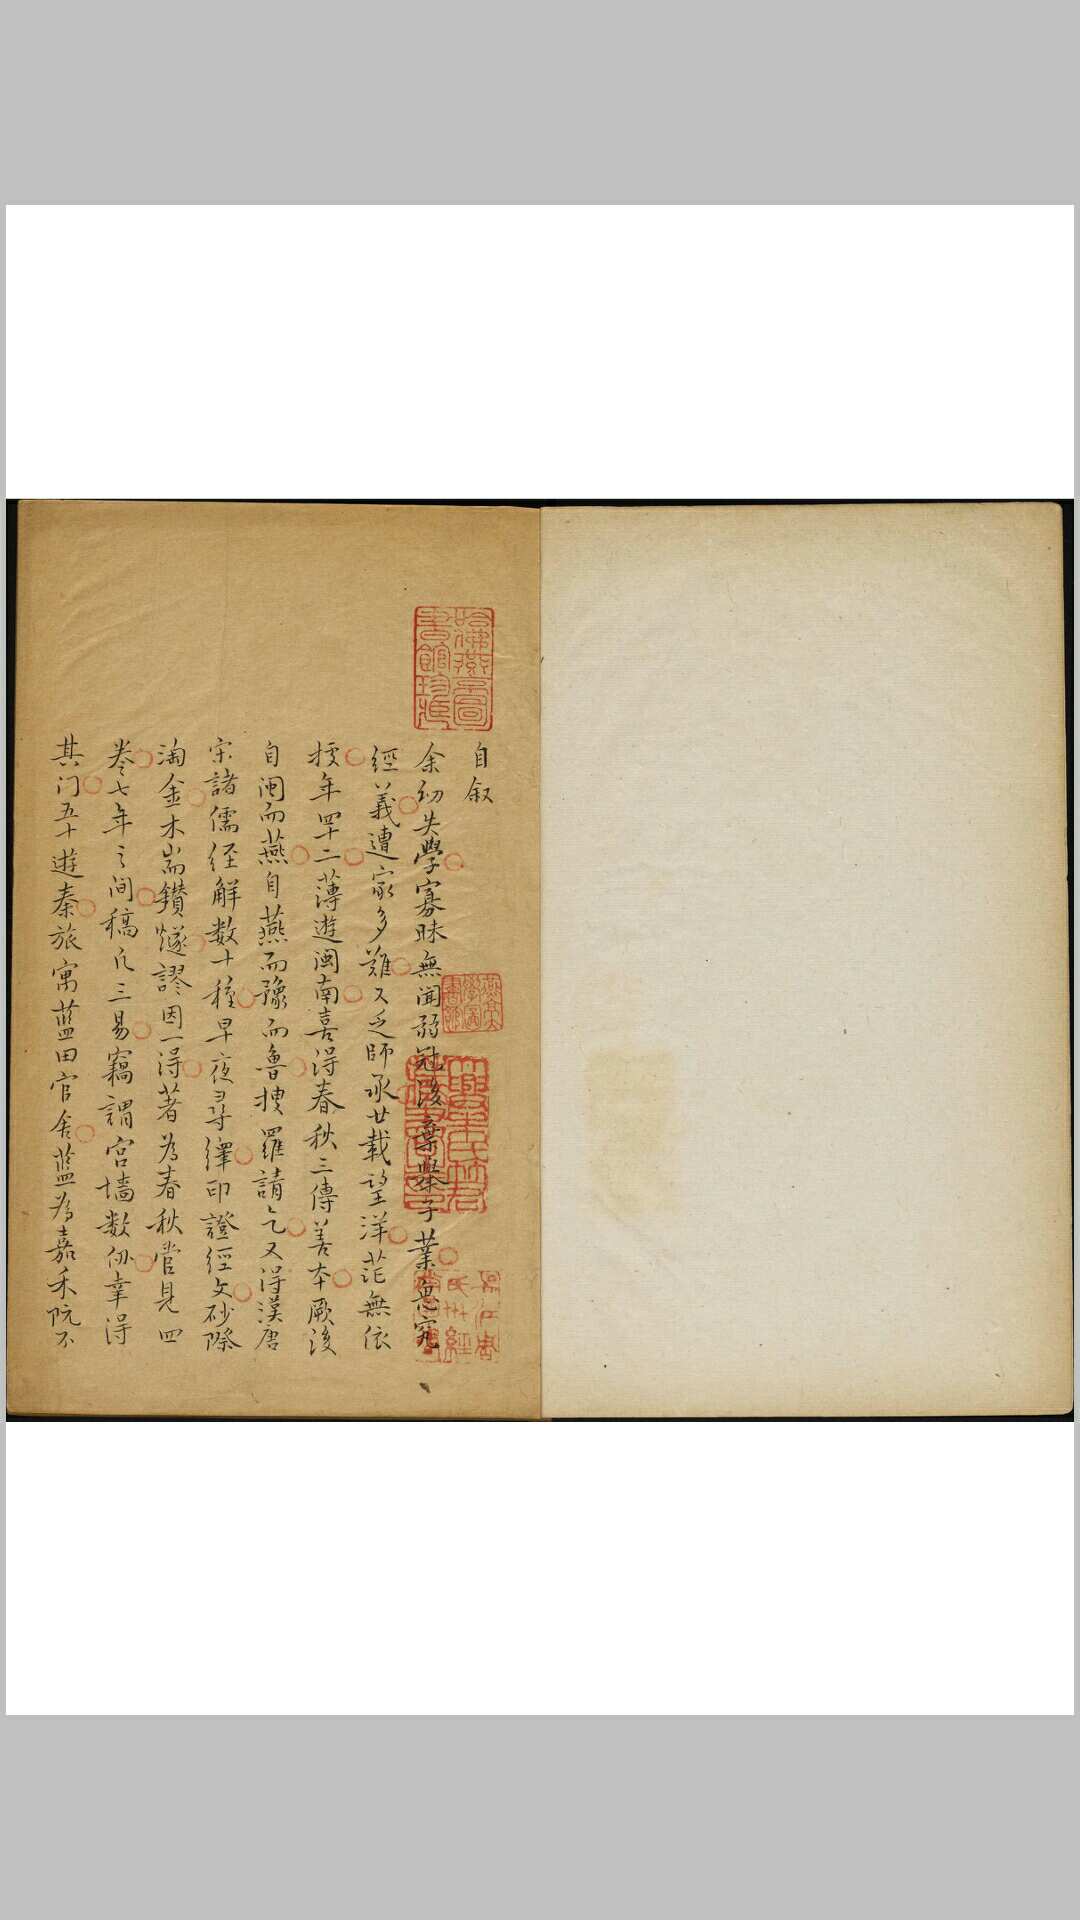 自叙
余幼失學寡昧無聞弱冠後棄舉子業思究
經義遭家多難又乏師承廿載望洋茫無依
據年四十二薄遊閩南喜得春秋三傳善本厥後
自閩而燕自燕而豫而魯搜羅請乞又得漢唐
宋諸儒經解数十種早夜尋繹印證經文砂際
淘金木耑鑚燧謬因一得著為春秋管見四
卷七年之间稿凢三易竊謂宫墻数仭幸得
其门五十遊秦旅寓藍田官舍藍為嘉禾阮不
哈佛燕京圖書館珍藏